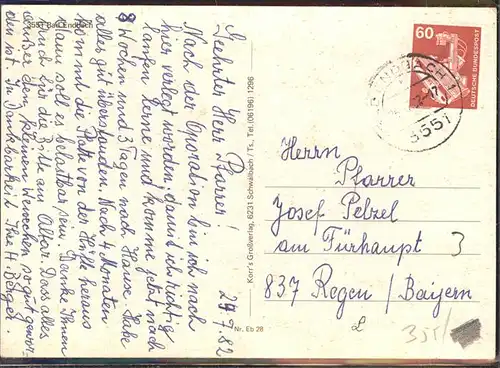 3551 Bad Endbach
29.7.82
Geehrter Herr Pfarrer!
Nach der Operation bin ich nach
hier verlegt worden, damit ich richtig
laufen lerne und komme jetzt nach
8 Wochen und 3 Tagen nach Hause. Habe
alles gut überstanden. Nach 4 Monaten
kommt die Platte von der Hüfte heraus
dann soll es belastbar sein. Danke Ihnen
und für die Bitte am Altar. Dass alles
außer dem kleinen Wehwehchen so gut gewor-
den ist. In Dankbarkeit Ihre H. Berger.
Nr. Eb 28
Korr's Großverlag, 6231 Schwalbach / Ts., Tel. (06196) 1296
60
DEUTSCHE BUNDESPOST
ENDBACH 1
3551
Herrn
Pfarrer
Josef Pelzel
am Fürhaupt 3
837 Regen / Bayern